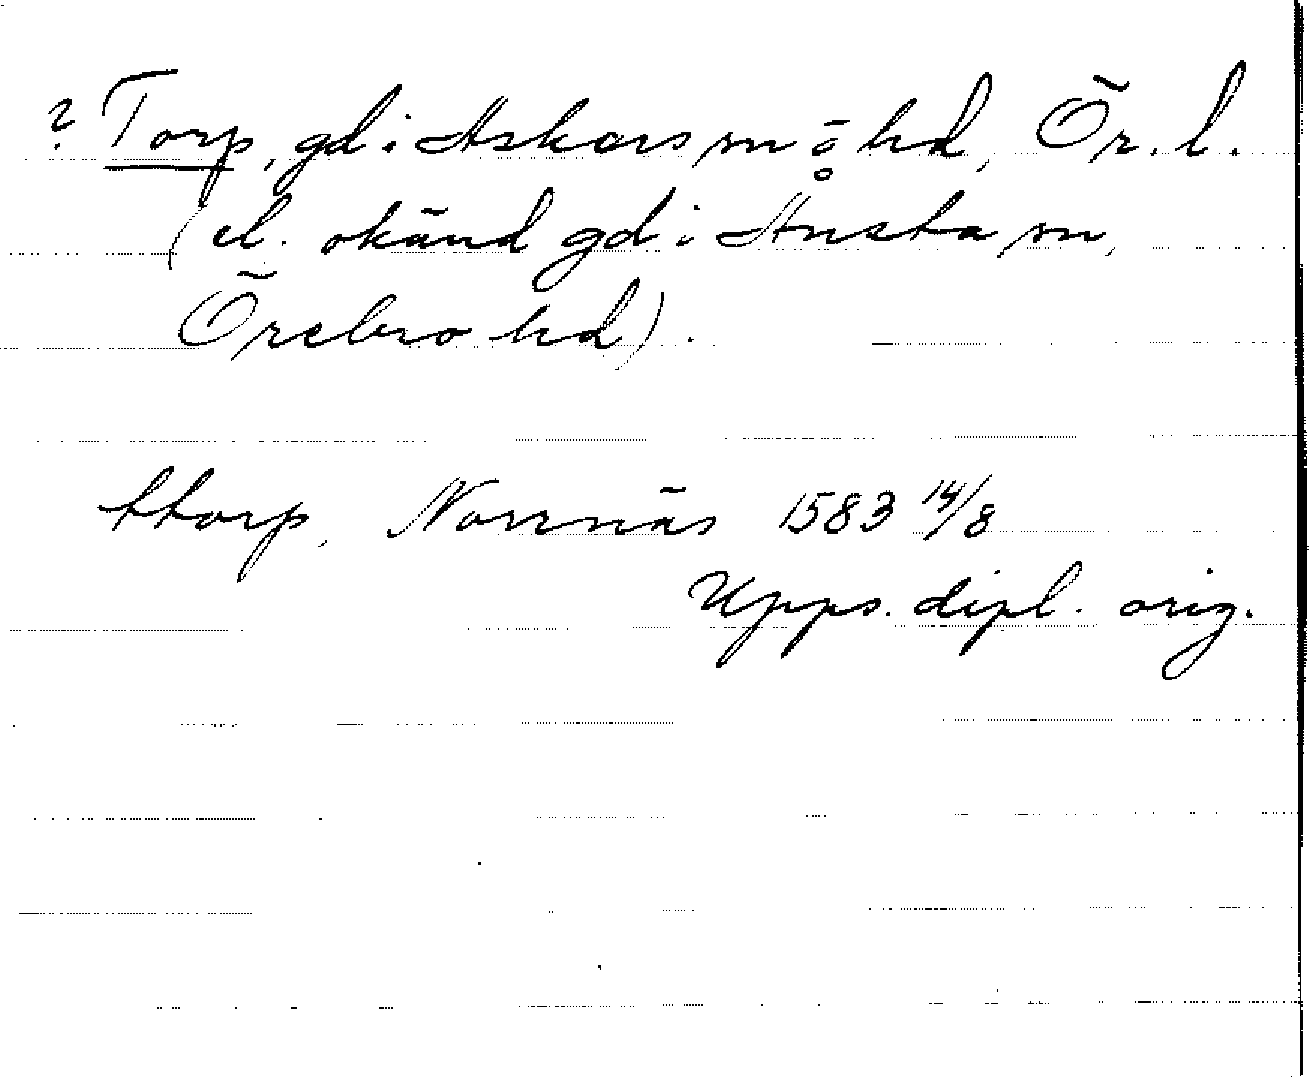 ? Torp, gd i Askers sn o hd, Ör. l.
(el. okänd gd i Ånsta sn,
Örebro hd).
ttorp, Norrnäs 1583 14/8
Upps. dipl. orig.